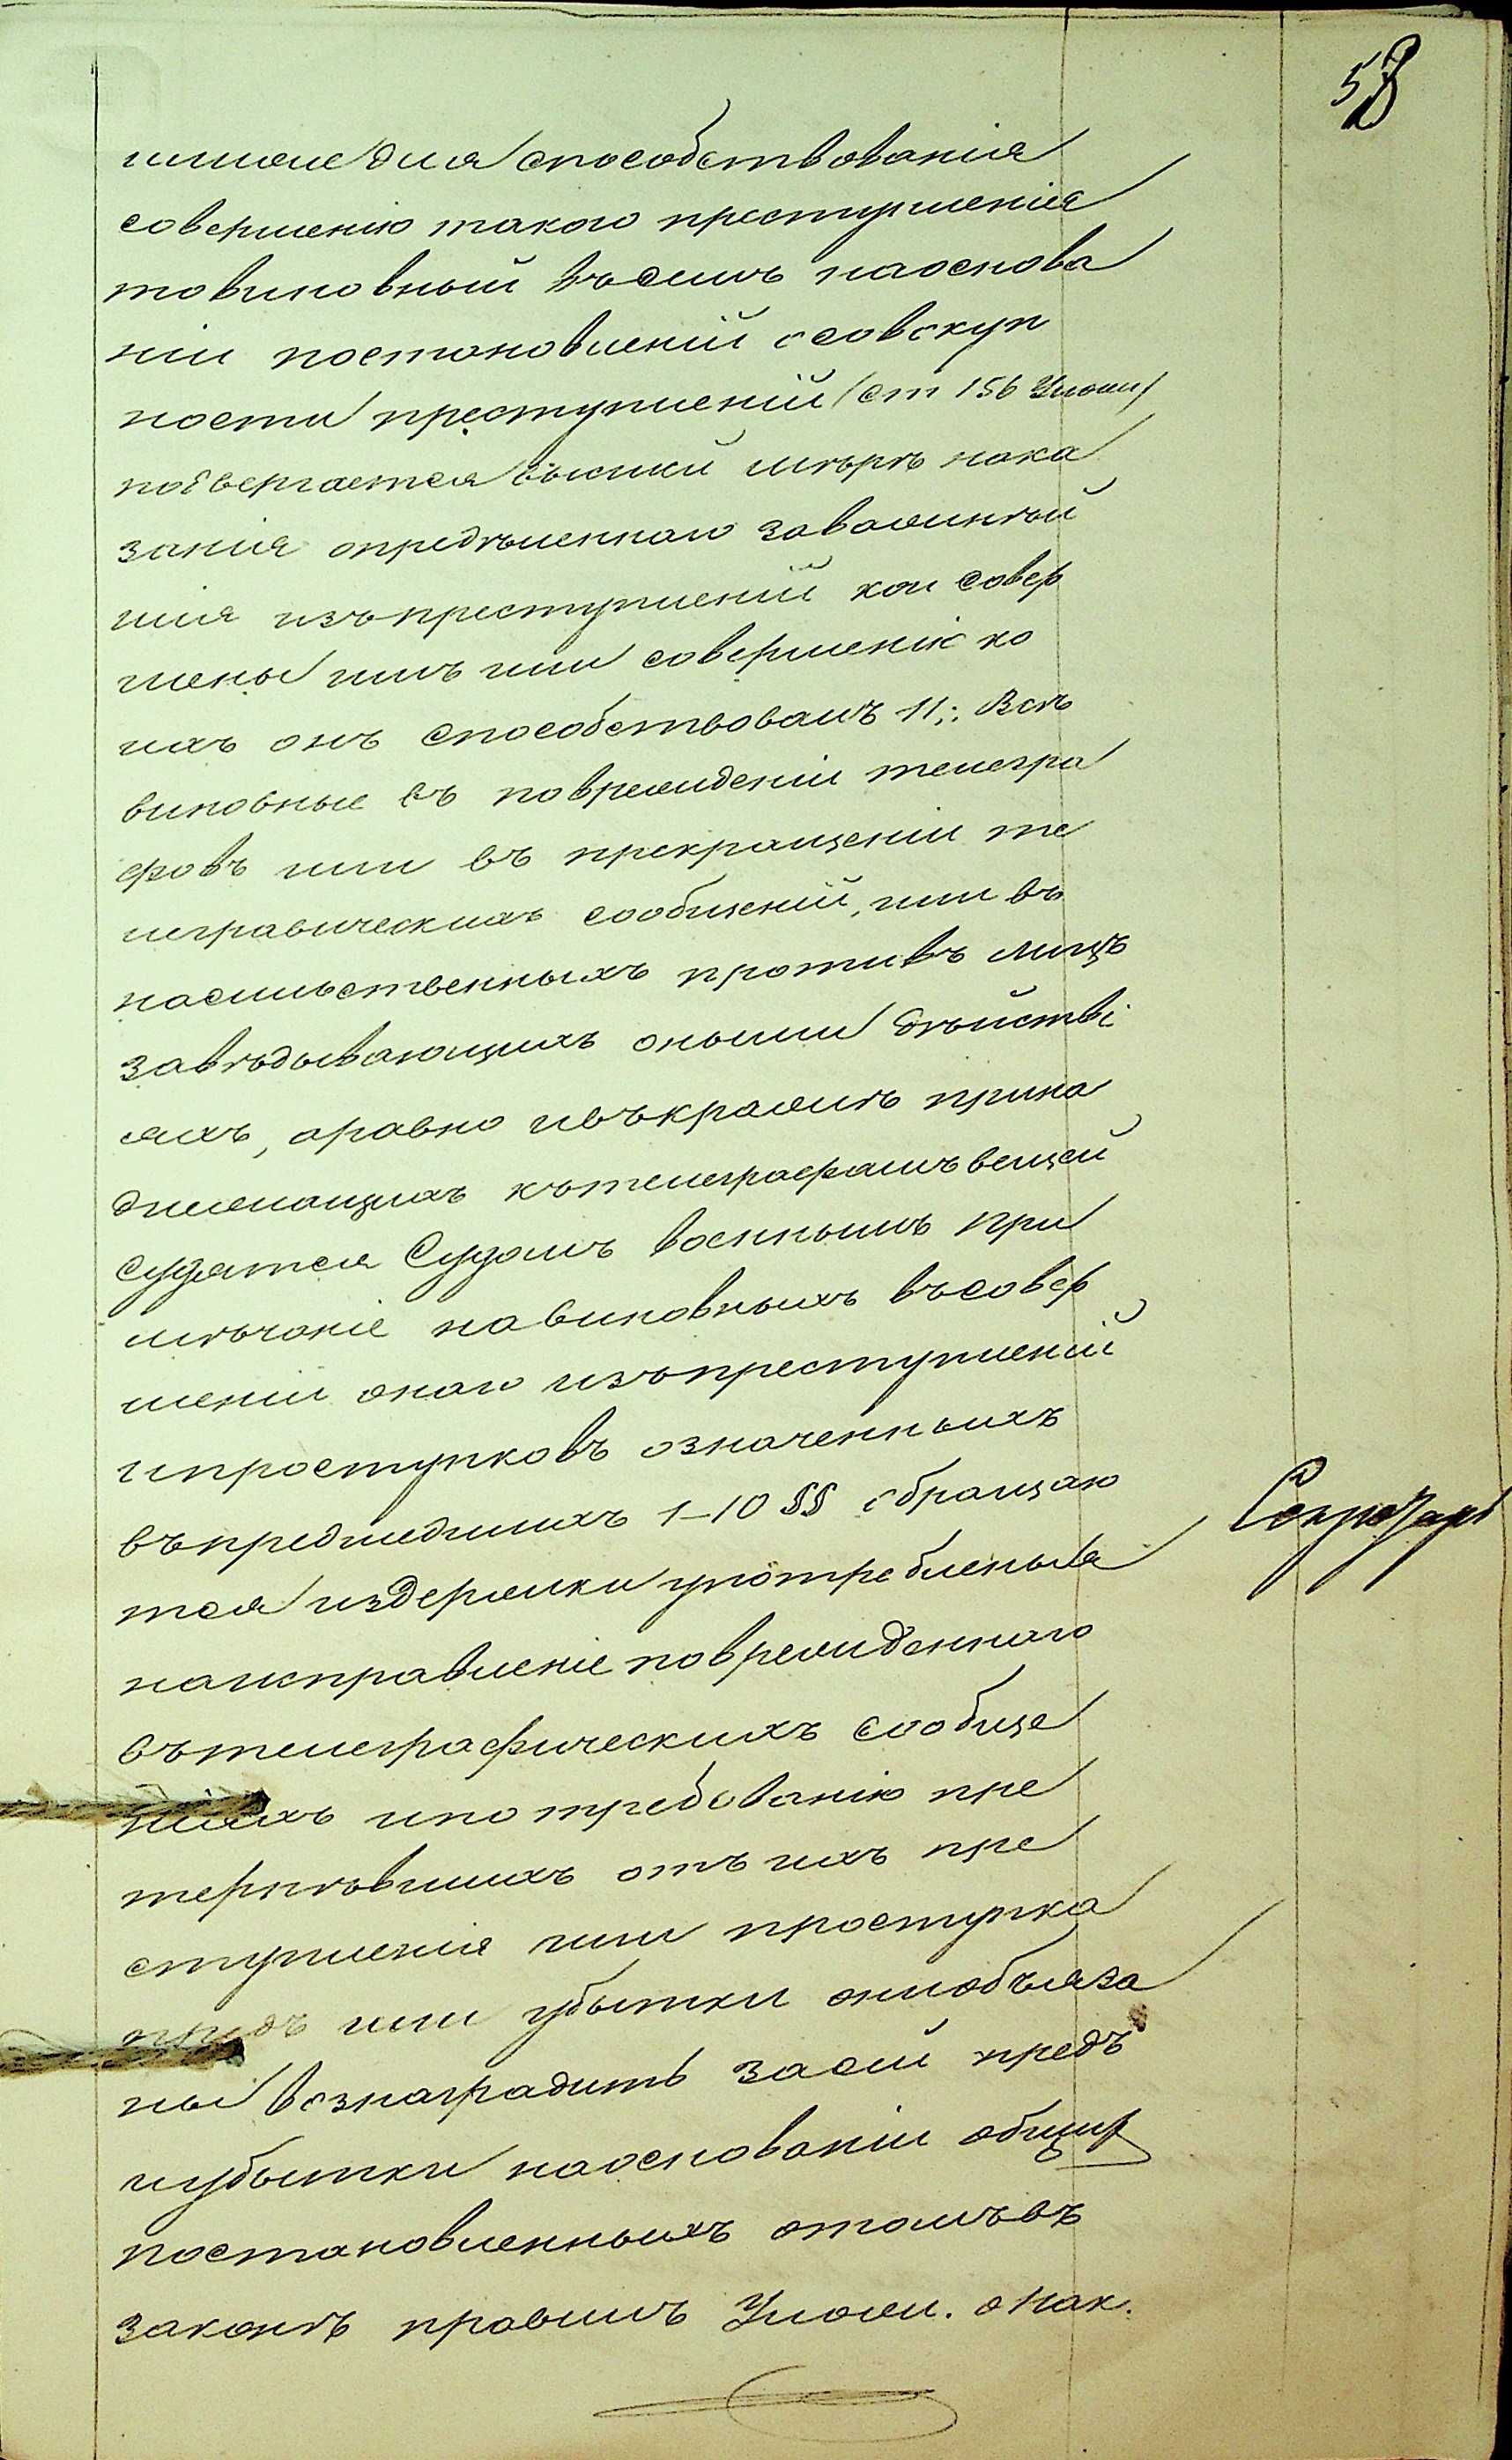 58
или же для способствованія
совершенію такого преступленія
то виновный въ семъ на основа
ніи постановленій о совокуп
ности преступленій (ст 156 Улож)
подвергается высшей мѣрѣ нака
занія опредѣленнаго за важнѣй
шія изъ преступленій кои совер
шены имъ или совершенію ко
ихъ онъ способствовалъ 11;. Всѣ
виновные въ поврежденіи телегра
фовъ или въ прекращеніи те
леграфическихъ сообщеній, или въ
насильственныхъ противъ лицъ
завѣдывающихъ оными дѣйстві
яхъ, а равно и въ кражѣ прина
длежащихъ къ телеграфамъ вещей
судятся Судомъ военнымъ при
мѣчаніе на виновныхъ въ совер
шеніи онаго изъ преступленій
и проступковъ означенныхъ
въ предшедшихъ 1-10 §§ обращаю
тся издержки употребленыя
на исправленіе поврежденнаго
въ телеграфическихъ сообще
ніяхъ и по требованію пре
терпѣвшихъ отъ ихъ пре
ступленія или проступка
вредъ или убытки они обьяза
ны вознаградить за сей вредъ
и убытки на основаніи общих
постановленныхъ о томъ въ
законѣ правилъ Улож. о Нак.
Секретарь